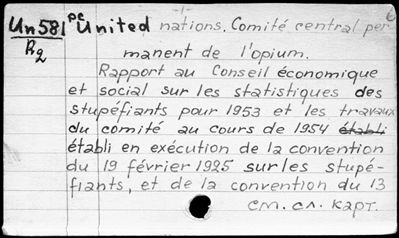 Un581 pc United nations. Comité central per
R2 manent de l'opium.
Rapport au Conseil économique
et social sur les statistiques des
stupéfiants pour 1953 et les travaux
du comité au cours de 1954 établi
établi en exécution de la convention
du 19 février 1925 sur les stupé-
fiants, et de la convention du 13
см. сл. карт.